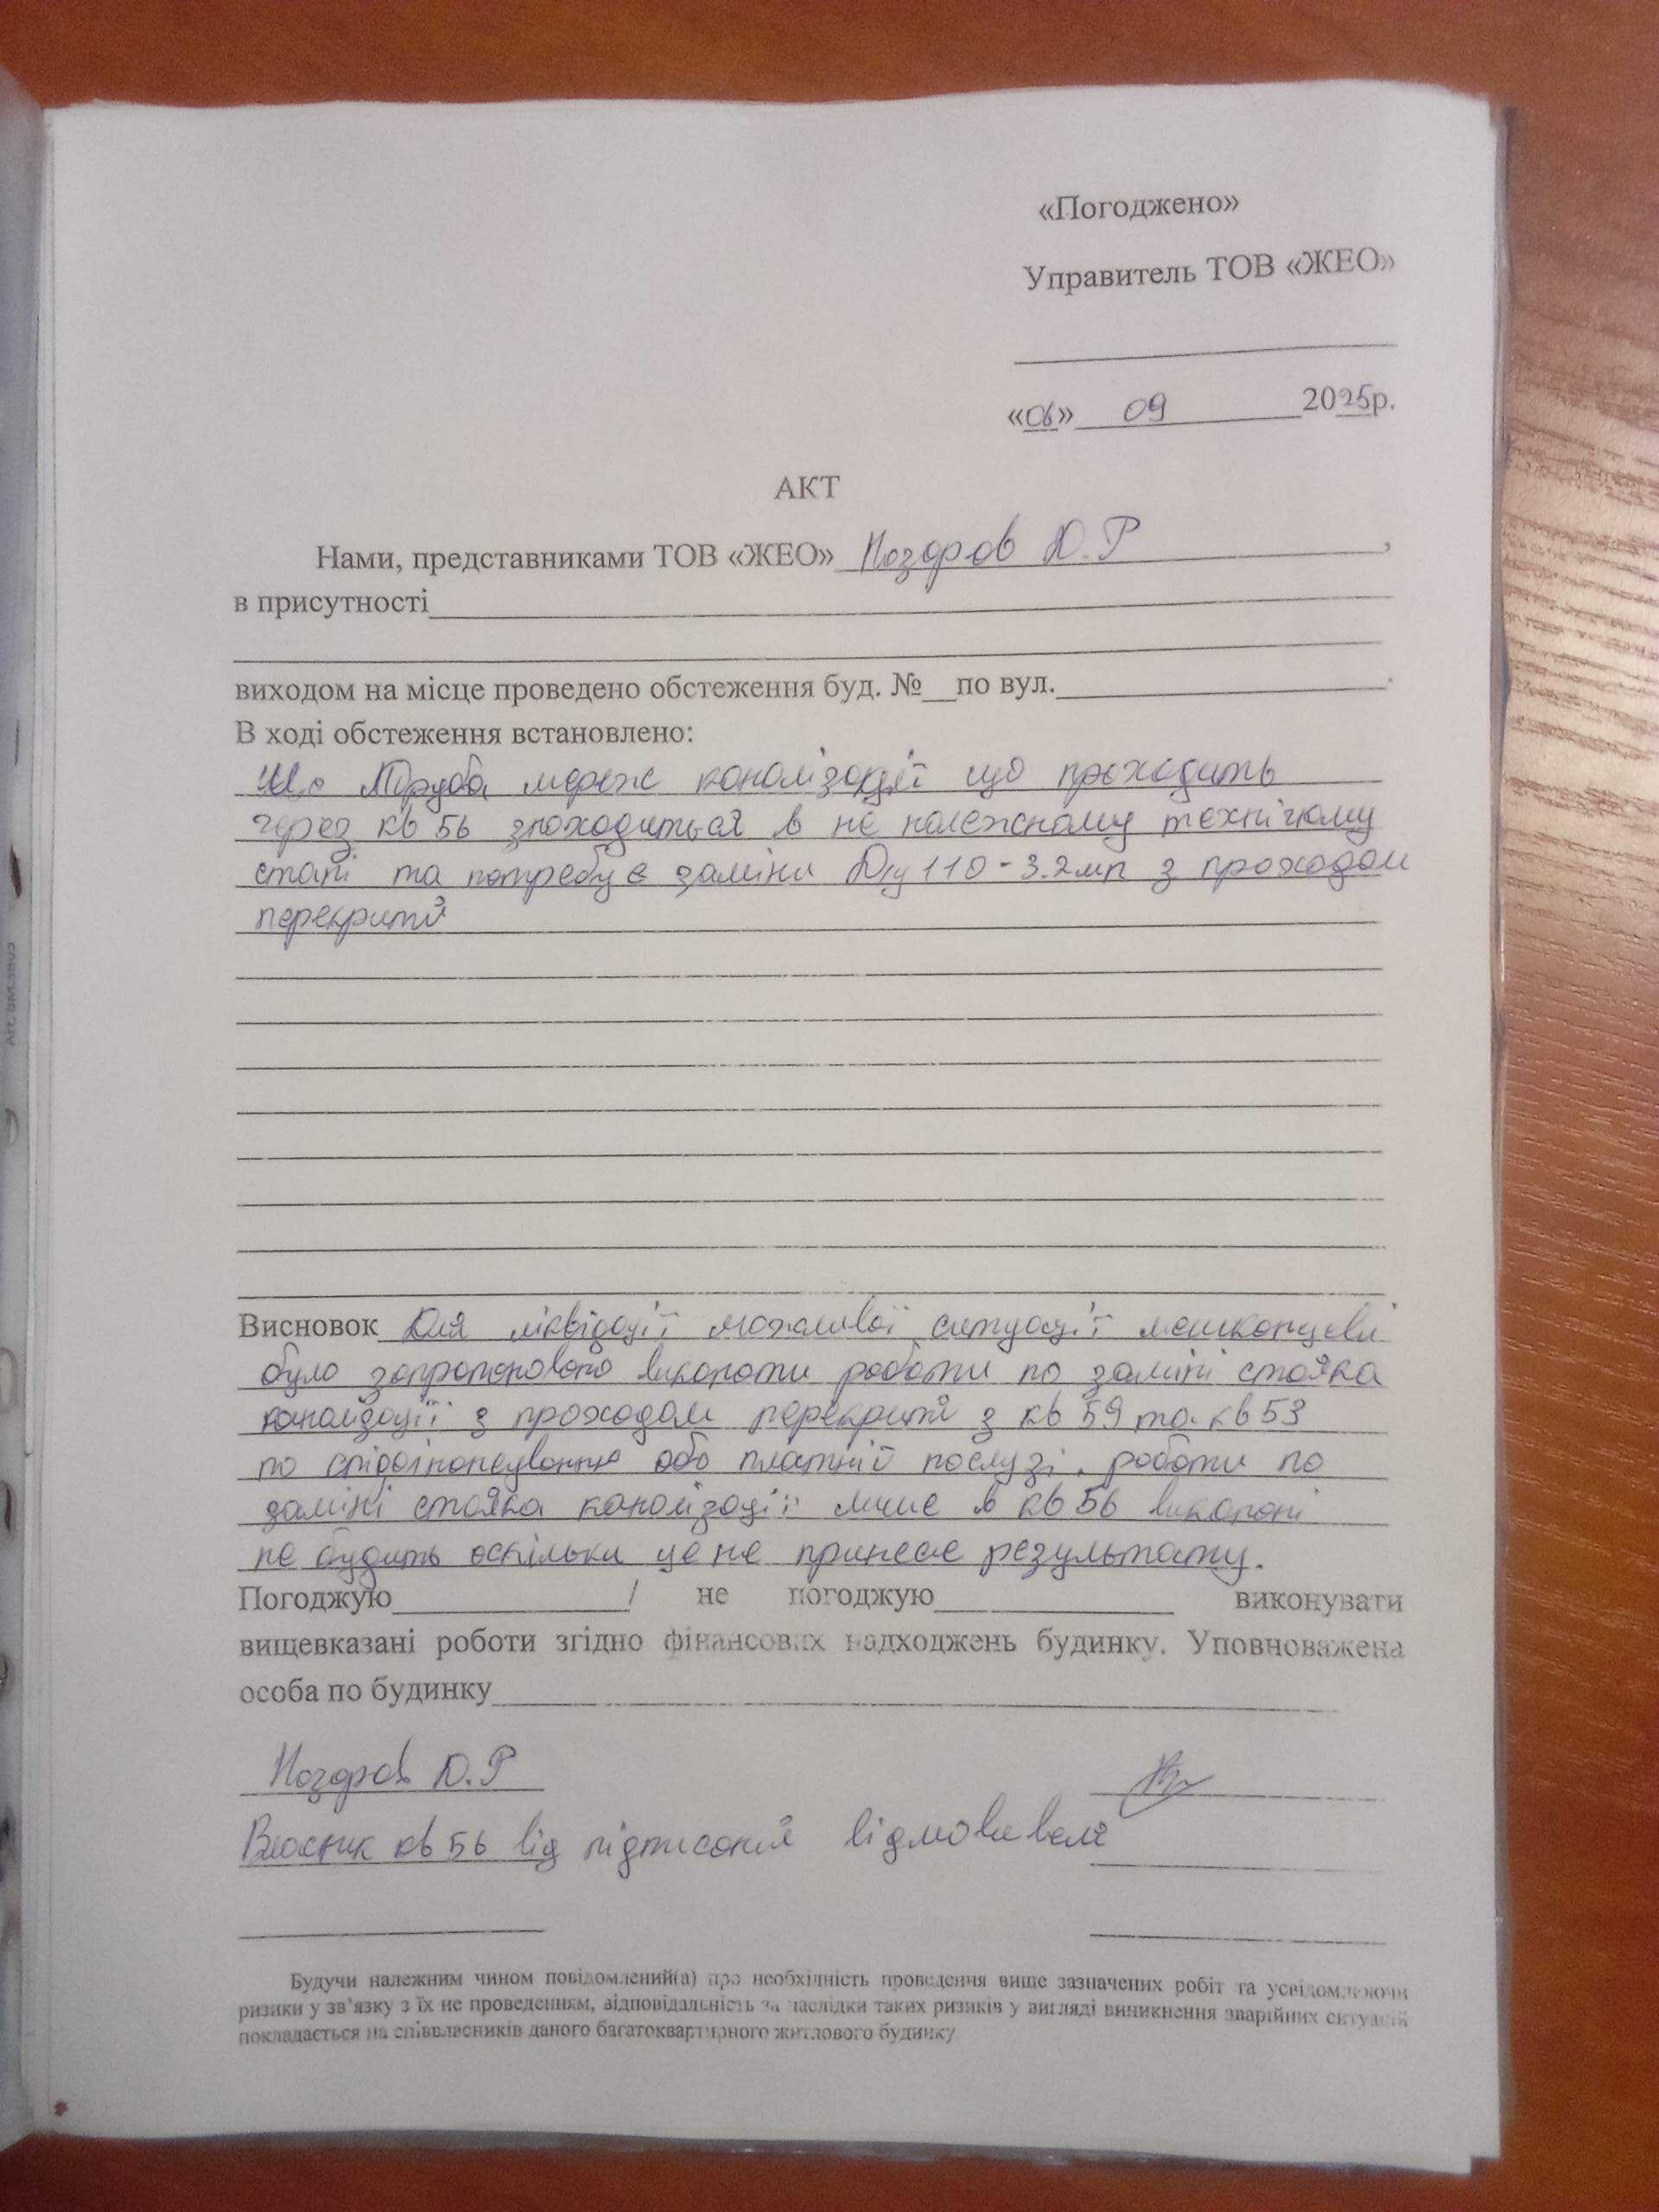 «Погоджено»
Управитель ТОВ «ЖЕО»
«06» 09 2025р.
АКТ
Нами, представниками ТОВ «ЖЕО» Ноздров Ю.Р,
в присутності
виходом на місце проведено обстеження буд. №__по вул.
В ході обстеження встановлено:
Що Труба мереж каналізації що проходить
через кв 56 знаходиться в не належному технічному
стані та потребує заміни Ду 110 - 3.2мп з проходом
перекриття
Висновок Для ліквідації можливої ситуації мешканцеві
було запропоновано виконати роботи по заміні стояка
каналізації з проходом перекриття з кв 59 та кв 53
по співфінансуванню або платній послузі. роботи по
заміні стояка каналізації лише в кв 56 виконані
не будить оскільки це не принесе результату.
Погоджую / не погоджую виконувати
вищевказані роботи згідно фінансових надходжень будинку. Уповноважена
особа по будинку
Ноздров Ю.Р
Власник кв 56 від підписання відмовився
Будучи належним чином повідомлений(а) про необхідність проведення вище зазначених робіт та усвідомлюючи
ризики у зв'язку з їх не проведенням, відповідальність за наслідки таких ризиків у вигляді виникнення аварійних ситуацій
покладається на співвласників даного багатоквартирного житлового будинку